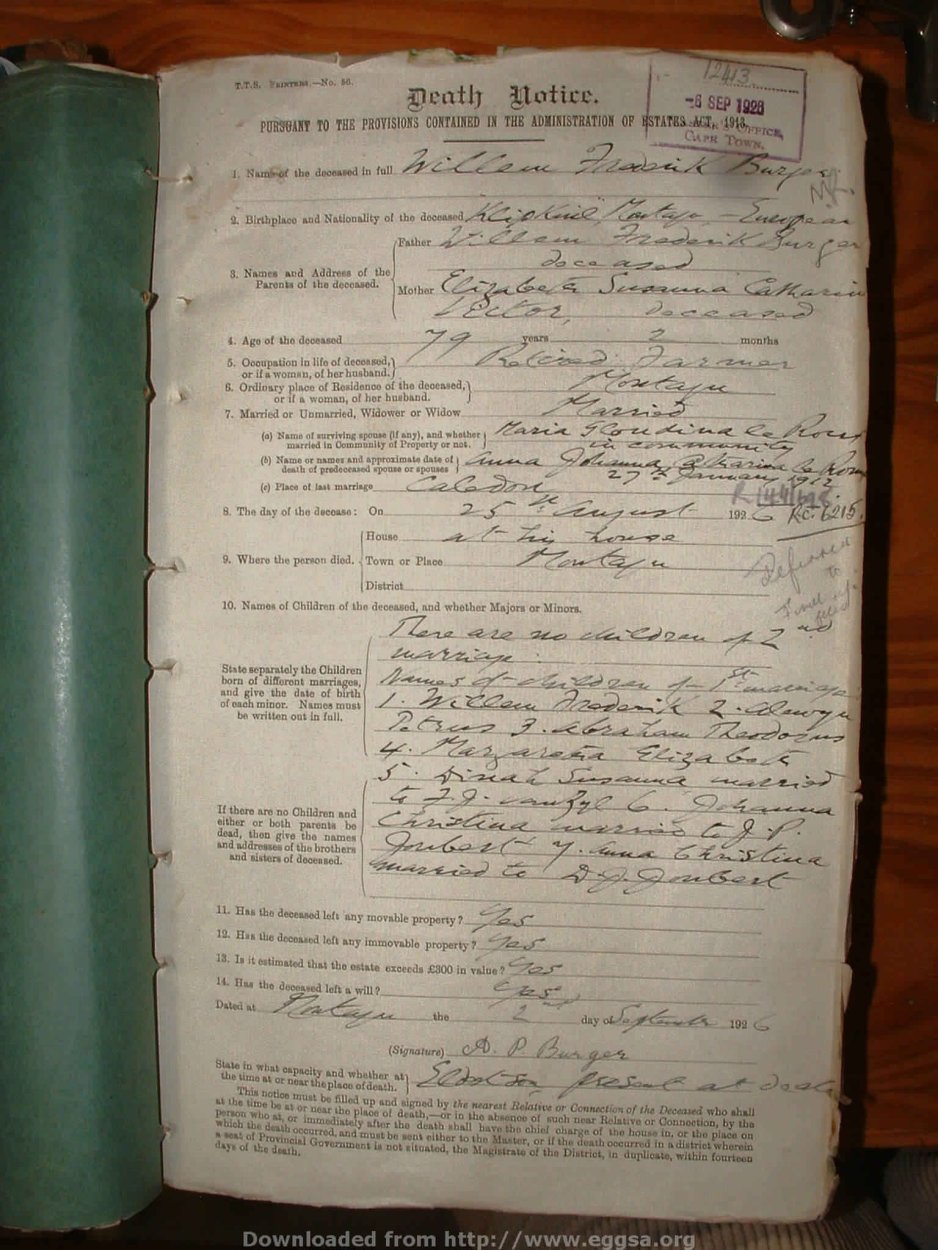 T.T.S. PRINTERS.—No. 56.
12413
-6 SEP 1926
OFFICE,
CAPE TOWN.
Death Notice.
PURSUANT TO THE PROVISIONS CONTAINED IN THE ADMINISTRATION OF ESTATES ACT, 1913.
1. Name of the deceased in full Willem Frederik Burger
2. Birthplace and Nationality of the deceased, Montagu - European
3. Names and Address of the Parents of the deceased.
Father Willem Frederik Burger
deceased
Mother Elizabeth Susanna Catharin
deceased
4. Age of the deceased 79 years 2 months
5. Occupation in life of deceased, or if a woman, of her husband. Retired Farmer
6. Ordinary place of Residence of the deceased, or if a woman, of her husband. Montagu
7. Married or Unmarried, Widower or Widow Married
(a) Name of surviving spouse (if any), and whether married in Community of Property or not. Maria le Roux
in community
(b) Name or names and approximate date of death of predeceased spouse or spouses Anna Johanna Catharina le Roux
27th January 1912
(c) Place of last marriage Caledon
8. The day of the decease: On 25th August 1926
R.C. 6215.
9. Where the person died.
House at his house
Town or Place Montagu
District
10. Names of Children of the deceased, and whether Majors or Minors.
State separately the Children born of different marriages, and give the date of birth of each minor. Names must be written out in full.
There are no children of 2nd
marriage
Names of children of 1st marriage
1. Willem Frederik 2. Alewyn
Petrus 3. Abraham Theodorus
4. Margaretha Elizabeth
5. Dinah Susanna married
to F.J. van Zyl 6. Johanna
Christina married to J.P.
Joubert 7. Anna Christina
married to D.J. Joubert
If there are no Children and either or both parents be dead, then give the names and addresses of the brothers and sisters of deceased.
11. Has the deceased left any movable property? Yes
12. Has the deceased left any immovable property? Yes
13. Is it estimated that the estate exceeds £300 in value? Yes
14. Has the deceased left a will? Yes
Dated at Montagu the 2nd day of September 1926
(Signature) A. P. Burger
State in what capacity and whether at the time at or near the place of death. son, present at death
This notice must be filled up and signed by the nearest Relative or Connection of the Deceased who shall
at the time be at or near the place of death,—or in the absence of such near Relative or Connection, by the
person who at, or immediately after the death shall have the chief charge of the house in, or the place on
which the death occurred, and must be sent either to the Master, or if the death occurred in a district wherein
a seat of Provincial Government is not situated, the Magistrate of the District, in duplicate, within fourteen
days of the death.
Downloaded from http://www.eggsa.org